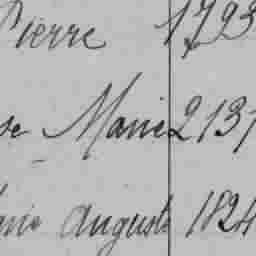 Pierre 1793
Marie 2131
Auguste 1824